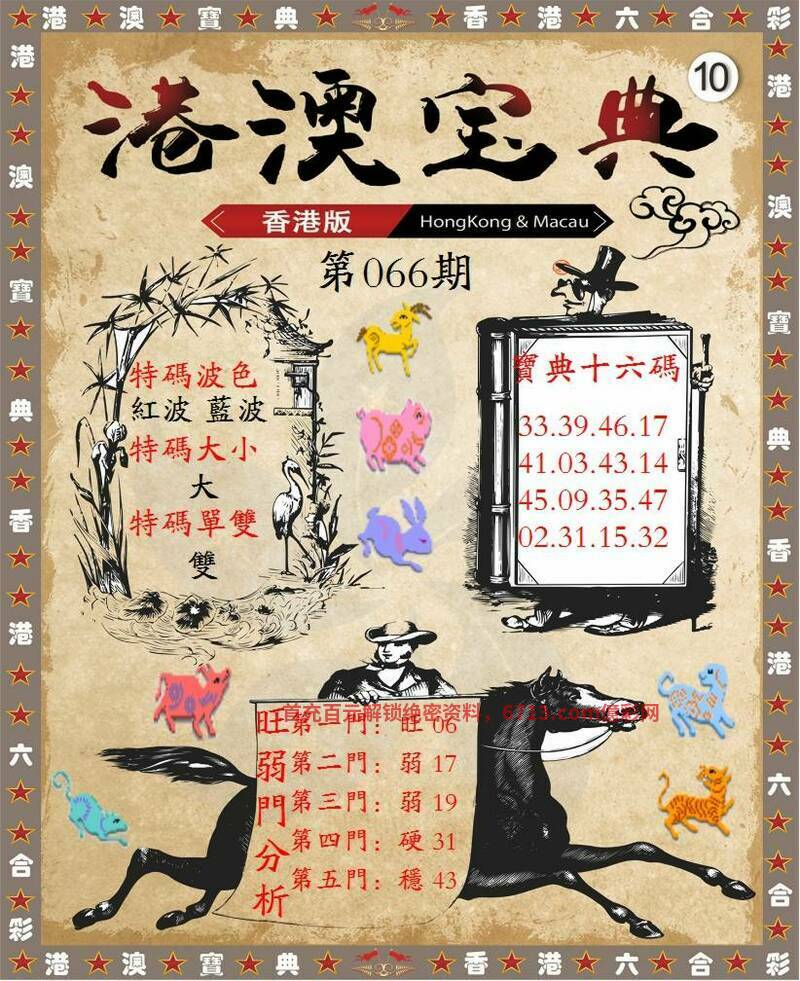 港澳寶典 香港六合彩
10
港澳宝典
香港版 HongKong & Macau
第066期
特碼波色
紅波 藍波
特碼大小
大
特碼單雙
雙
寶典十六碼
33.39.46.17
41.03.43.14
45.09.35.47
02.31.15.32
首充百元解锁绝密资料，6713.com信彩网
旺弱門分析
第一門：旺 06
第二門：弱 17
第三門：弱 19
第四門：硬 31
第五門：穩 43
港澳寶典香港六合彩
港澳寶典香港六合彩
港澳寶典 香港六合彩